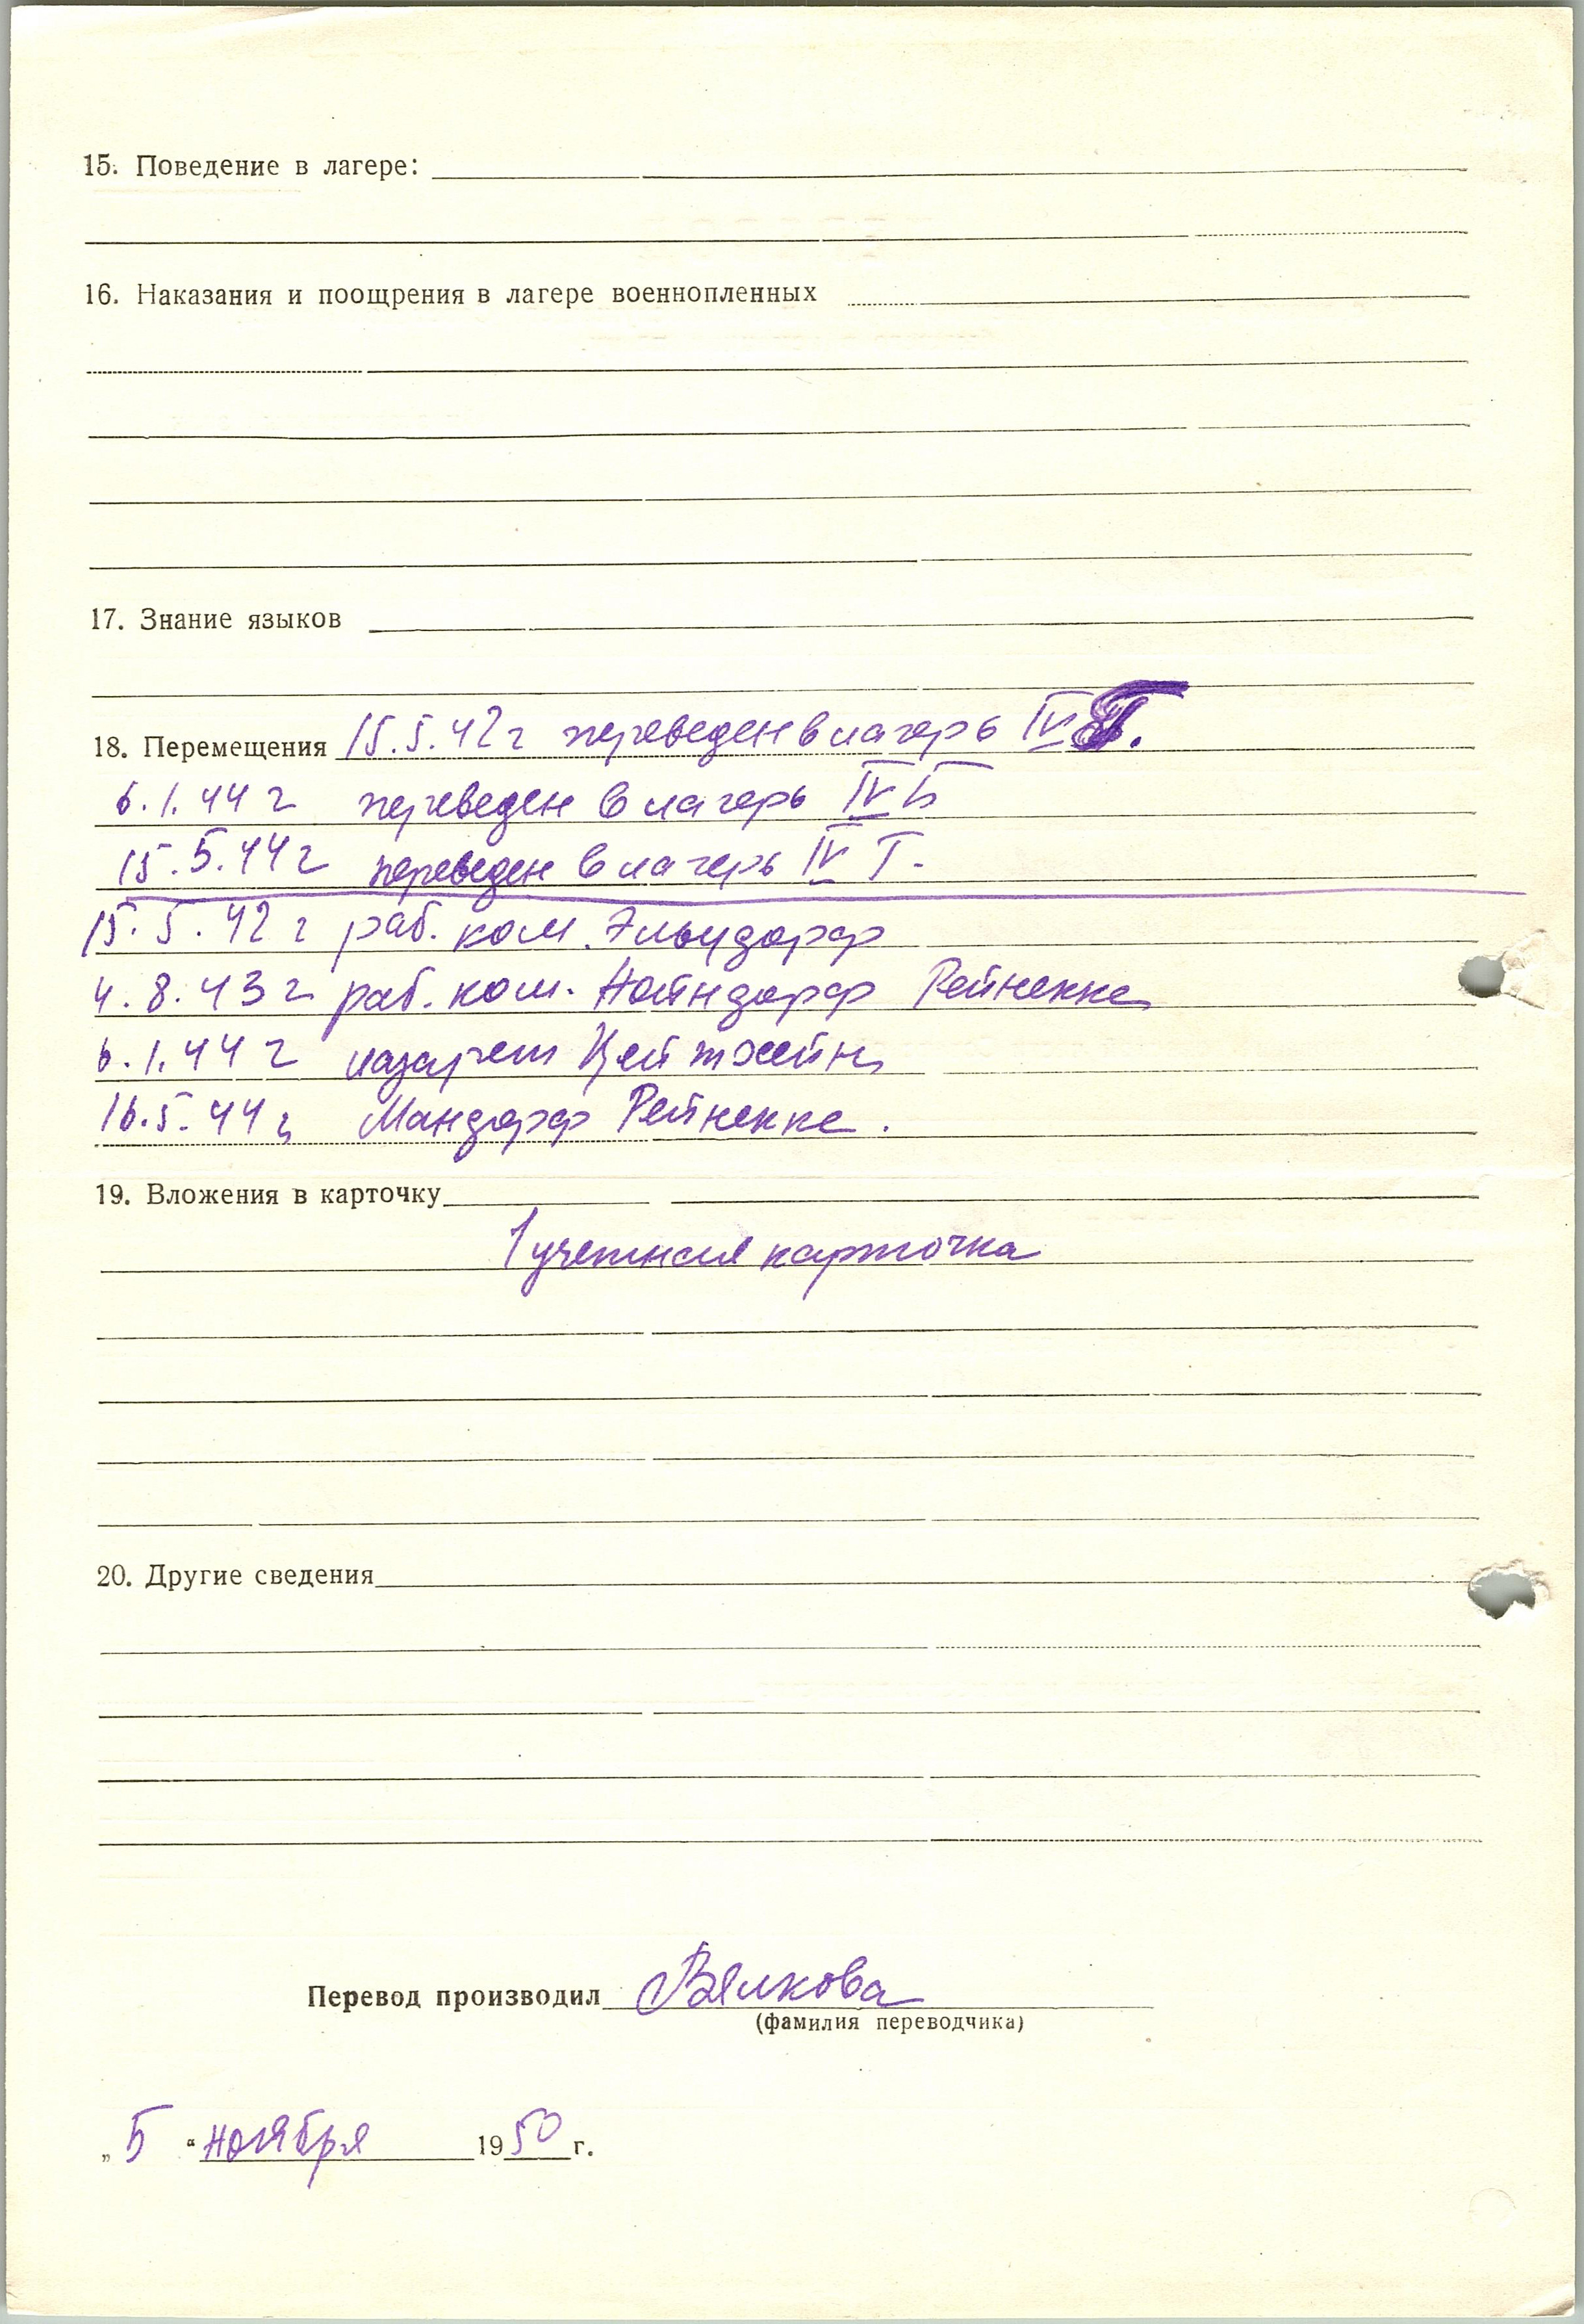 15. Поведение в лагере:
16. Наказания и поощрения в лагере военнопленных
17. Знание языков
18. Перемещения 15.5.42 г переведен в лагерь IV
6.1.44 г переведен в лагерь IV Б
15.5.44 г переведен в лагерь IV Г.
15.5.42 г раб. ком.
4.8.43 г раб. ком. Нойндорф Рейнекке
6.1.44 г лазарет Цейтхейн
16.5.44 г Мандорф Рейнекке.
19. Вложения в карточку
1 учетная карточка
20. Другие сведения
Перевод производил Вялкова
(фамилия переводчика)
„5“ ноября 1950 г.